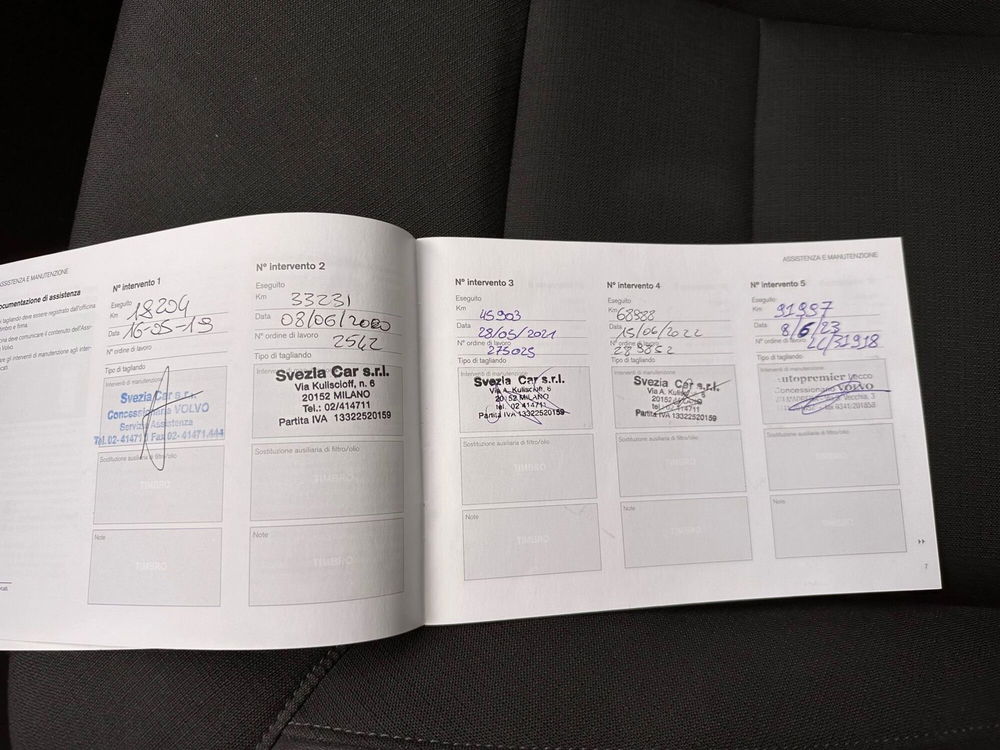 ASSISTENZA E MANUTENZIONE
documentazione di assistenza
N° intervento 1
Eseguito
Km 18204
Data 16-05-19
N° ordine di lavoro
Tipo di tagliando
Interventi di manutenzione
Svezia Car s.r.l.
Concessionaria VOLVO
Servizio Assistenza
Tel. 02-414711 Fax 02-41471.444
Sostituzione ausiliaria di filtro/olio
TIMBRO
Note
TIMBRO
N° intervento 2
Eseguito
Km 33231
Data 08/06/2020
N° ordine di lavoro 2542
Tipo di tagliando
Svezia Car s.r.l.
Via Kuliscioff, n. 6
20152 MILANO
Tel.: 02/414711
Partita IVA 13322520159
Sostituzione ausiliaria di filtro/olio
TIMBRO
Note
TIMBRO
ASSISTENZA E MANUTENZIONE
N° intervento 3
Eseguito
Km 45903
Data 28/05/2021
N° ordine di lavoro
275025
Tipo di tagliando
Svezia Car s.r.l.
Via A. Kuliscioff, n. 6
20152 MILANO
tel. 02 414711
Partita IVA 13322520159
Sostituzione ausiliaria di filtro/olio
TIMBRO
Note
TIMBRO
N° intervento 4
Eseguito
Km
Data 15/06/2022
N° ordine di lavoro
Tipo di tagliando
Svezia Car s.r.l.
20152 MILANO
tel. 02 414711
Partita IVA 13322520159
Sostituzione ausiliaria di filtro/olio
TIMBRO
Note
TIMBRO
N° intervento 5
Eseguito
Km 91997
Data 8/6/23
N° ordine di lavoro
Tipo di tagliando
Interventi di manutenzione
Autopremier Lecco
Concessionario VOLVO
Sostituzione ausiliaria di filtro/olio
TIMBRO
Note
TIMBRO
7